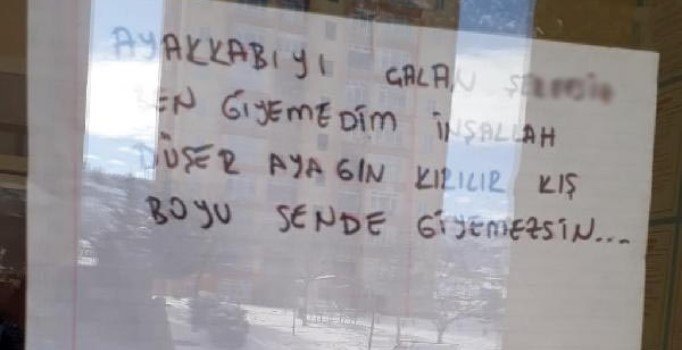 AYAKKABIYI GALAN
BEN GİYEMEDİM İNŞALLAH
DÜŞER AYAGIN KIRILIR KIŞ
BOYU SENDE GİYEMEZSİN...